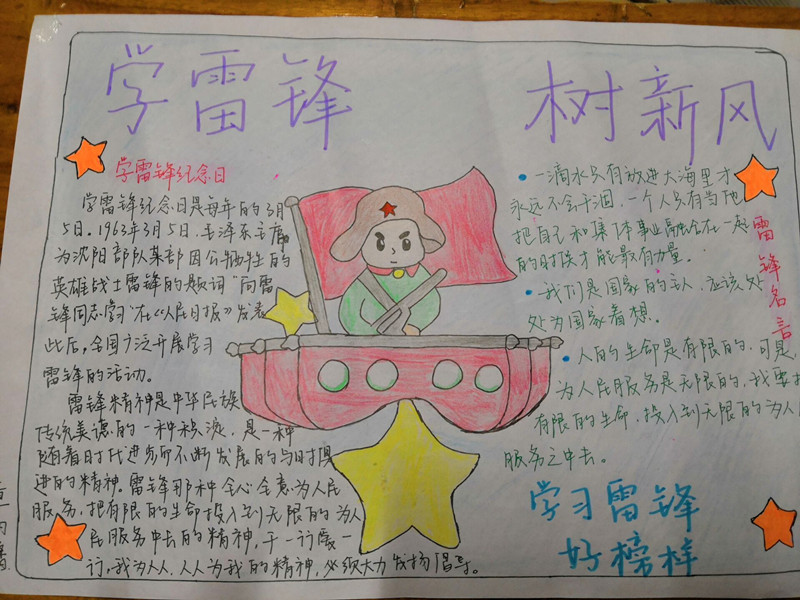 学雷锋 树新风
学雷锋纪念日
学雷锋纪念日是每年的3月
5日。1963年3月5日,毛泽东主席
为沈阳部队某部因公牺牲的
英雄战士雷锋的题词“向雷
锋同志学习”在《人民日报》发表
此后,全国广泛开展学习
雷锋的活动。
雷锋精神是中华民族
传统美德的一种积淀,是一种
随着时代进步而不断发展的与时俱
进的精神。雷锋那种全心全意为人民
服务,把有限的生命投入到无限的为人
民服务中去的精神,干一行爱一
行,我为人人,人人为我的精神,必须大力发扬倡导。
雷锋名言
•一滴水只有放进大海里才
永远不会干涸,一个人只有当他
把自己和集体事业融合在一起
的时候才能最有力量。
•我们是国家的主人,应该处
处为国家着想。
•人的生命是有限的,可是,
为人民服务是无限的,我要把
有限的生命,投入到无限的为人民
服务之中去。
学习雷锋
好榜样